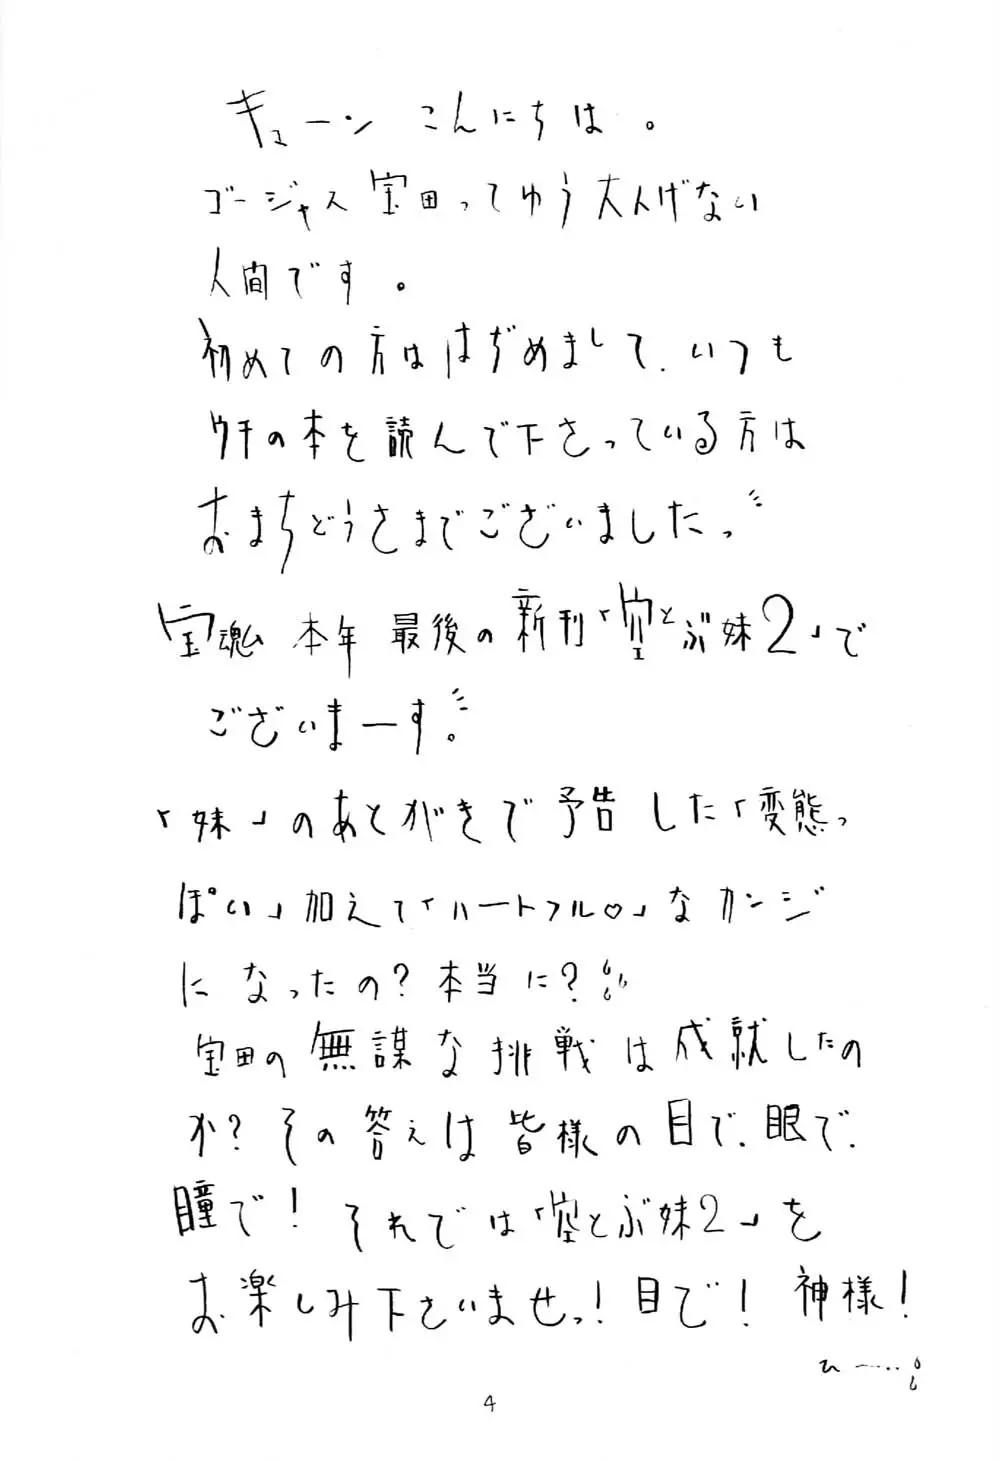 キューン こんにちは。
ゴージャス宝田ってゆう大人げない
人間です。
初めての方ははぢめまして、いつも
ウチの本を読んで下さっている方は
おまちどうさまでございましたっ
宝魂 本年 最後の新刊「空とぶ妹2」で
ございまーす。
「妹」のあとがきで予告した「変態っ
ぽい」加えて「ハートフル♡」なカンジ
になったの?本当に?
宝田の無謀な挑戦は成就したの
か?その答えは皆様の目で、眼で、
瞳で!それでは「空とぶ妹2」を
お楽しみ下さいませっ!目で!神様!
ひー…
4